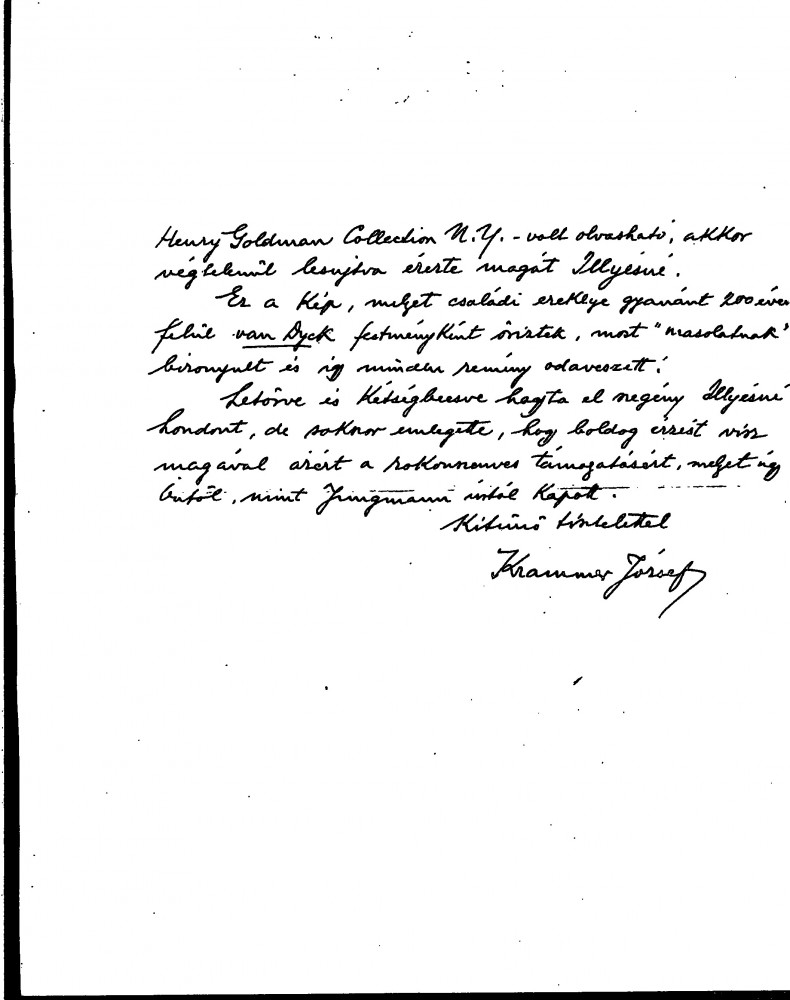 Henry Goldman Collection N.Y. - volt olvasható, akkor
végtelenül lesujtva érezte magát Illyésné.
Ez a kép, melyet családi ereklye gyanánt 200 éven
felül van Dyck festményként őriztek, most "masolatnak"
bizonyult és így minden remény odaveszett!
Letörve és kétségbeesve hagyta el szegény Illyésné
Londont, de sokszor emlegette, hogy boldog érzést visz
magával azért a rokonszenves támogatásért, melyet úgy
Öntől, mint Jungmann úrtól kapott.
Kitünő tisztelettel
Krammer József